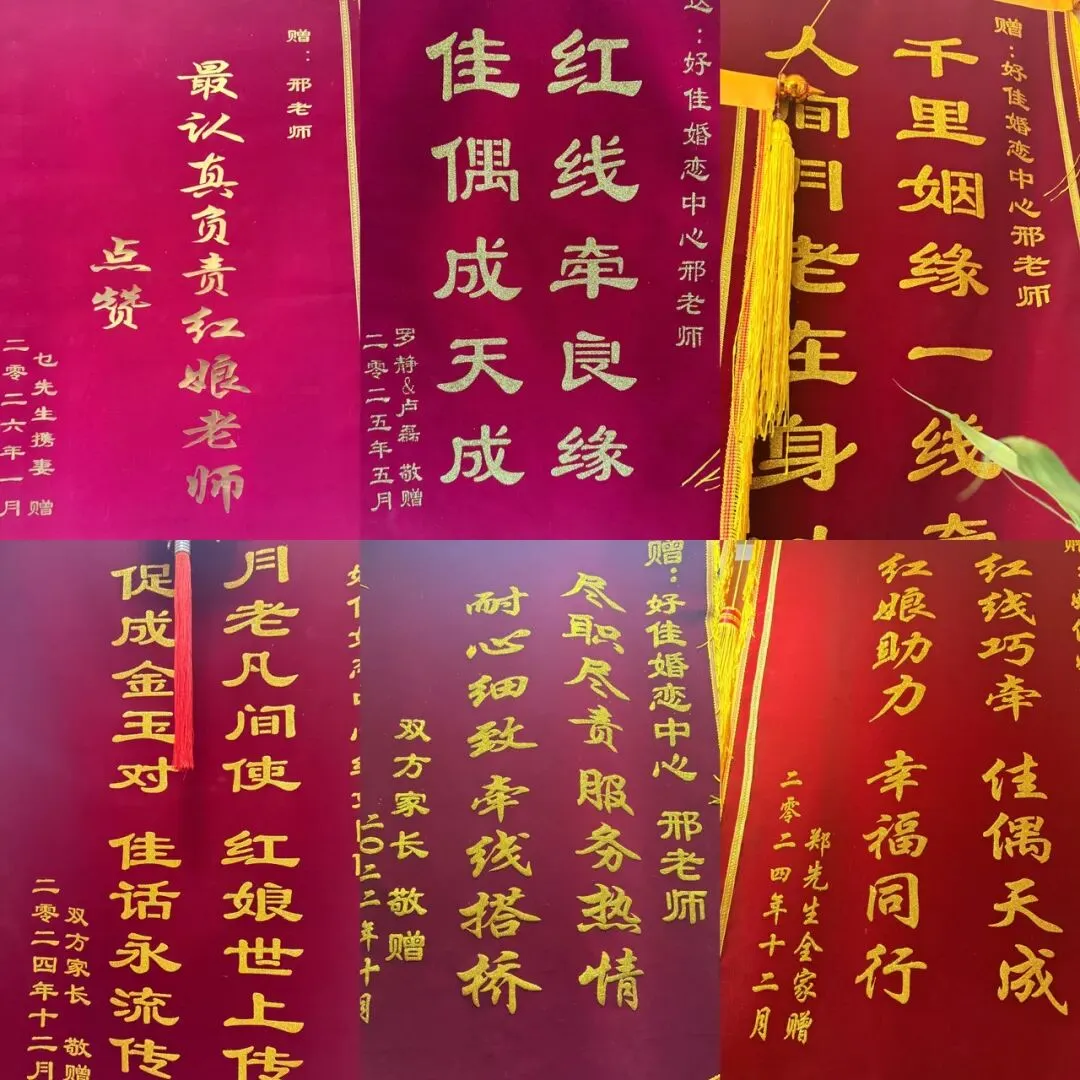 赠：邢老师
最认真负责红娘老师
点赞
先生携妻 赠
二零二六年一月
：好佳婚恋中心邢老师
红线牵良缘
佳偶成天成
罗静&卢磊 敬赠
二零二五年五月
赠：好佳婚恋中心邢老师
千里姻缘一线牵
人间月老在身
月老凡间使 红娘世上传
促成金玉对 佳话永流传
双方家长 敬赠
二零二四年十二月
赠：好佳婚恋中心 邢老师
尽职尽责服务热情
耐心细致牵线搭桥
双方家长 敬赠
年十月
红线巧牵 佳偶天成
红娘助力 幸福同行
郑先生全家赠
二零二四年十二月